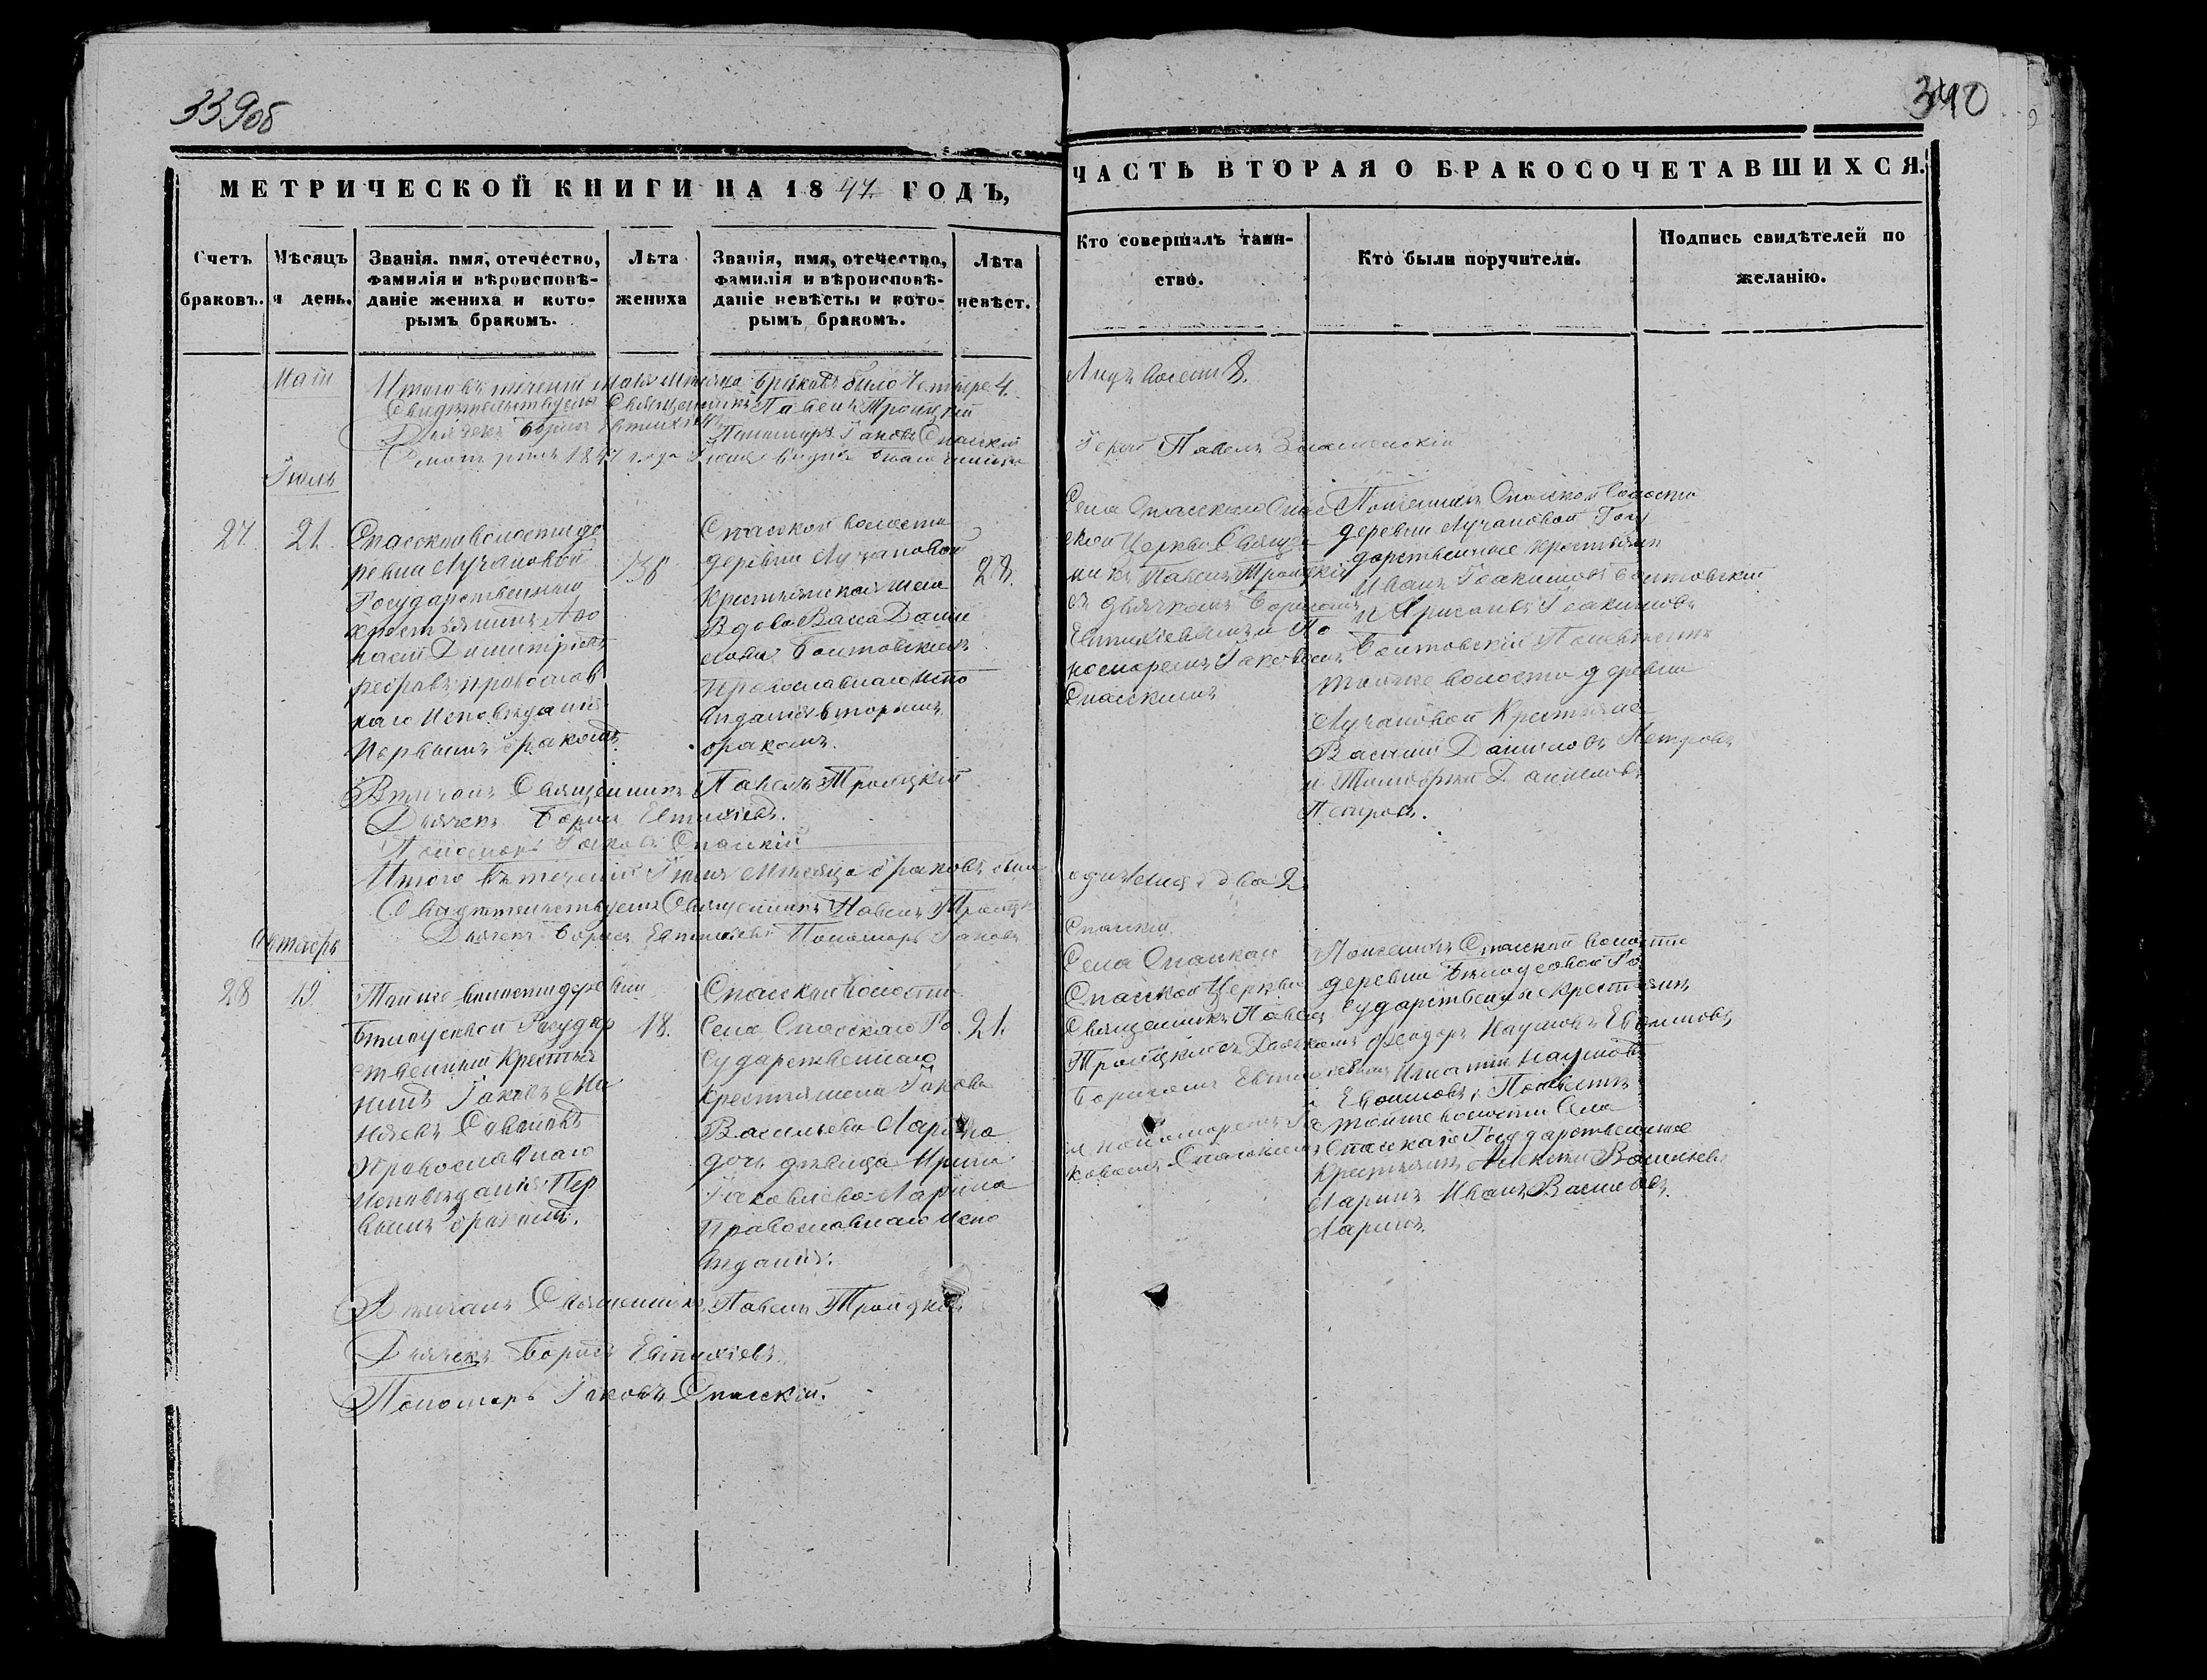 339об
340
МЕТРИЧЕСКОЙ КНИГИ НА 1847 ГОДЪ,
ЧАСТЬ ВТОРАЯ О БРАКОСОЧЕТАВШИХСЯ.
Счетъ браковъ.
Мѣсяцъ и день.
Званія. имя, отечество,
фамилія и вѣроисповѣ-
даніе жениха и кото-
рымъ бракомъ.
Лѣта
жениха
Званія, имя, отечество,
фамилія и вѣроисповѣ-
даніе невѣсты и кото-
рымъ бракомъ.
Лѣта
невѣст.
Кто совершалъ таин-
ство.
Кто были поручители.
Подпись свидѣтелей по
желанію.
Маій
Итого въ теченіи Маія Мѣсяца браковъ было четыре 4.
Лицъ восемь 8.
Свидѣтельствуемъ Священникъ Павелъ Троицкій
Дьячекъ Борисъ Евтихіевъ Пономарь Іаковъ Спасскій
Смотрѣлъ 1847 года Благочинный
Іерей Павелъ Знаменскій
Іюль
27.
21.
Спасской волости де
ревни Лучановой
Государственный
крестьянинъ Аѳо
насій Димитріевъ
православ
наго Исповѣданія
Первымъ бракомъ.
38
Спасской волости
деревни Лучановой
Крестьянская жена
Вдова Васса Дани
лова Болтовская
Православнаго Испо
вѣданія вторымъ
бракомъ.
28.
Села Спасскаго Спас
ской Церкви Священ
никъ Павелъ Троицкій
съ дьячкомъ Борисомъ
Евтихіевымъ и По
номаремъ Іаковомъ
Спасскимъ
По женихѣ Спасской волости
деревни Лучановой Госу
дарственные крестьяне
Иванъ Іоакимовъ Болтовскій
и Іоакимовъ
Болтовскій По невѣстѣ
той же волости деревни
Лучановой Крестьяне
Василій Даниловъ Петровъ
и Тимофей Даниловъ
Петровъ.
Вѣнчалъ Священникъ Павелъ Троицкій
Дьячекъ Борисъ Евтихіевъ.
Пономарь Іаковъ Спасскій
Итого въ теченіи Іюля Мѣсяца браковъ было
одинъ Лицъ два 2
Свидѣтельствуемъ Священникъ Павелъ Троицк
Дьячекъ Борисъ Евтихіевъ Пономарь Іаковъ
Спасскій
Октябрь
28
19.
Той же волости деревни
Бѣлоусовой Государ
ственный Крестья
нинъ Іаковъ
Православнаго
Исповѣданія Пер
вымъ бракомъ.
18.
Спасской волости
Села Спасскаго Го
сударственнаго
крестьянина Іакова
Васильева Ларина
дочь дѣвица Ирина
Іаковлева Ларина
Православнаго Испо
вѣданія.
21.
Села Спасскаго
Спасской Церкви
Священникъ Павелъ
Троицкій съ Дьячкомъ
Борисомъ Евтихіевымъ
и пономаремъ Іа
ковомъ Спасскимъ
По женихѣ Спасской волости
деревни Бѣлоусовой Го
сударственные Крестьяне
Феодоръ Наумовъ Евфимовъ
Игнатій Наумовъ
Евфимовъ, По невѣстѣ
той же волости Села
Спасскаго Государственные
Крестьяне Алексѣй Васильевъ
Ларинъ Иванъ Васильевъ
Ларинъ.
Вѣнчалъ Священникъ Павелъ Троицкій
Дьячекъ Борисъ Евтихіевъ
Пономарь Іаковъ Спасскій.